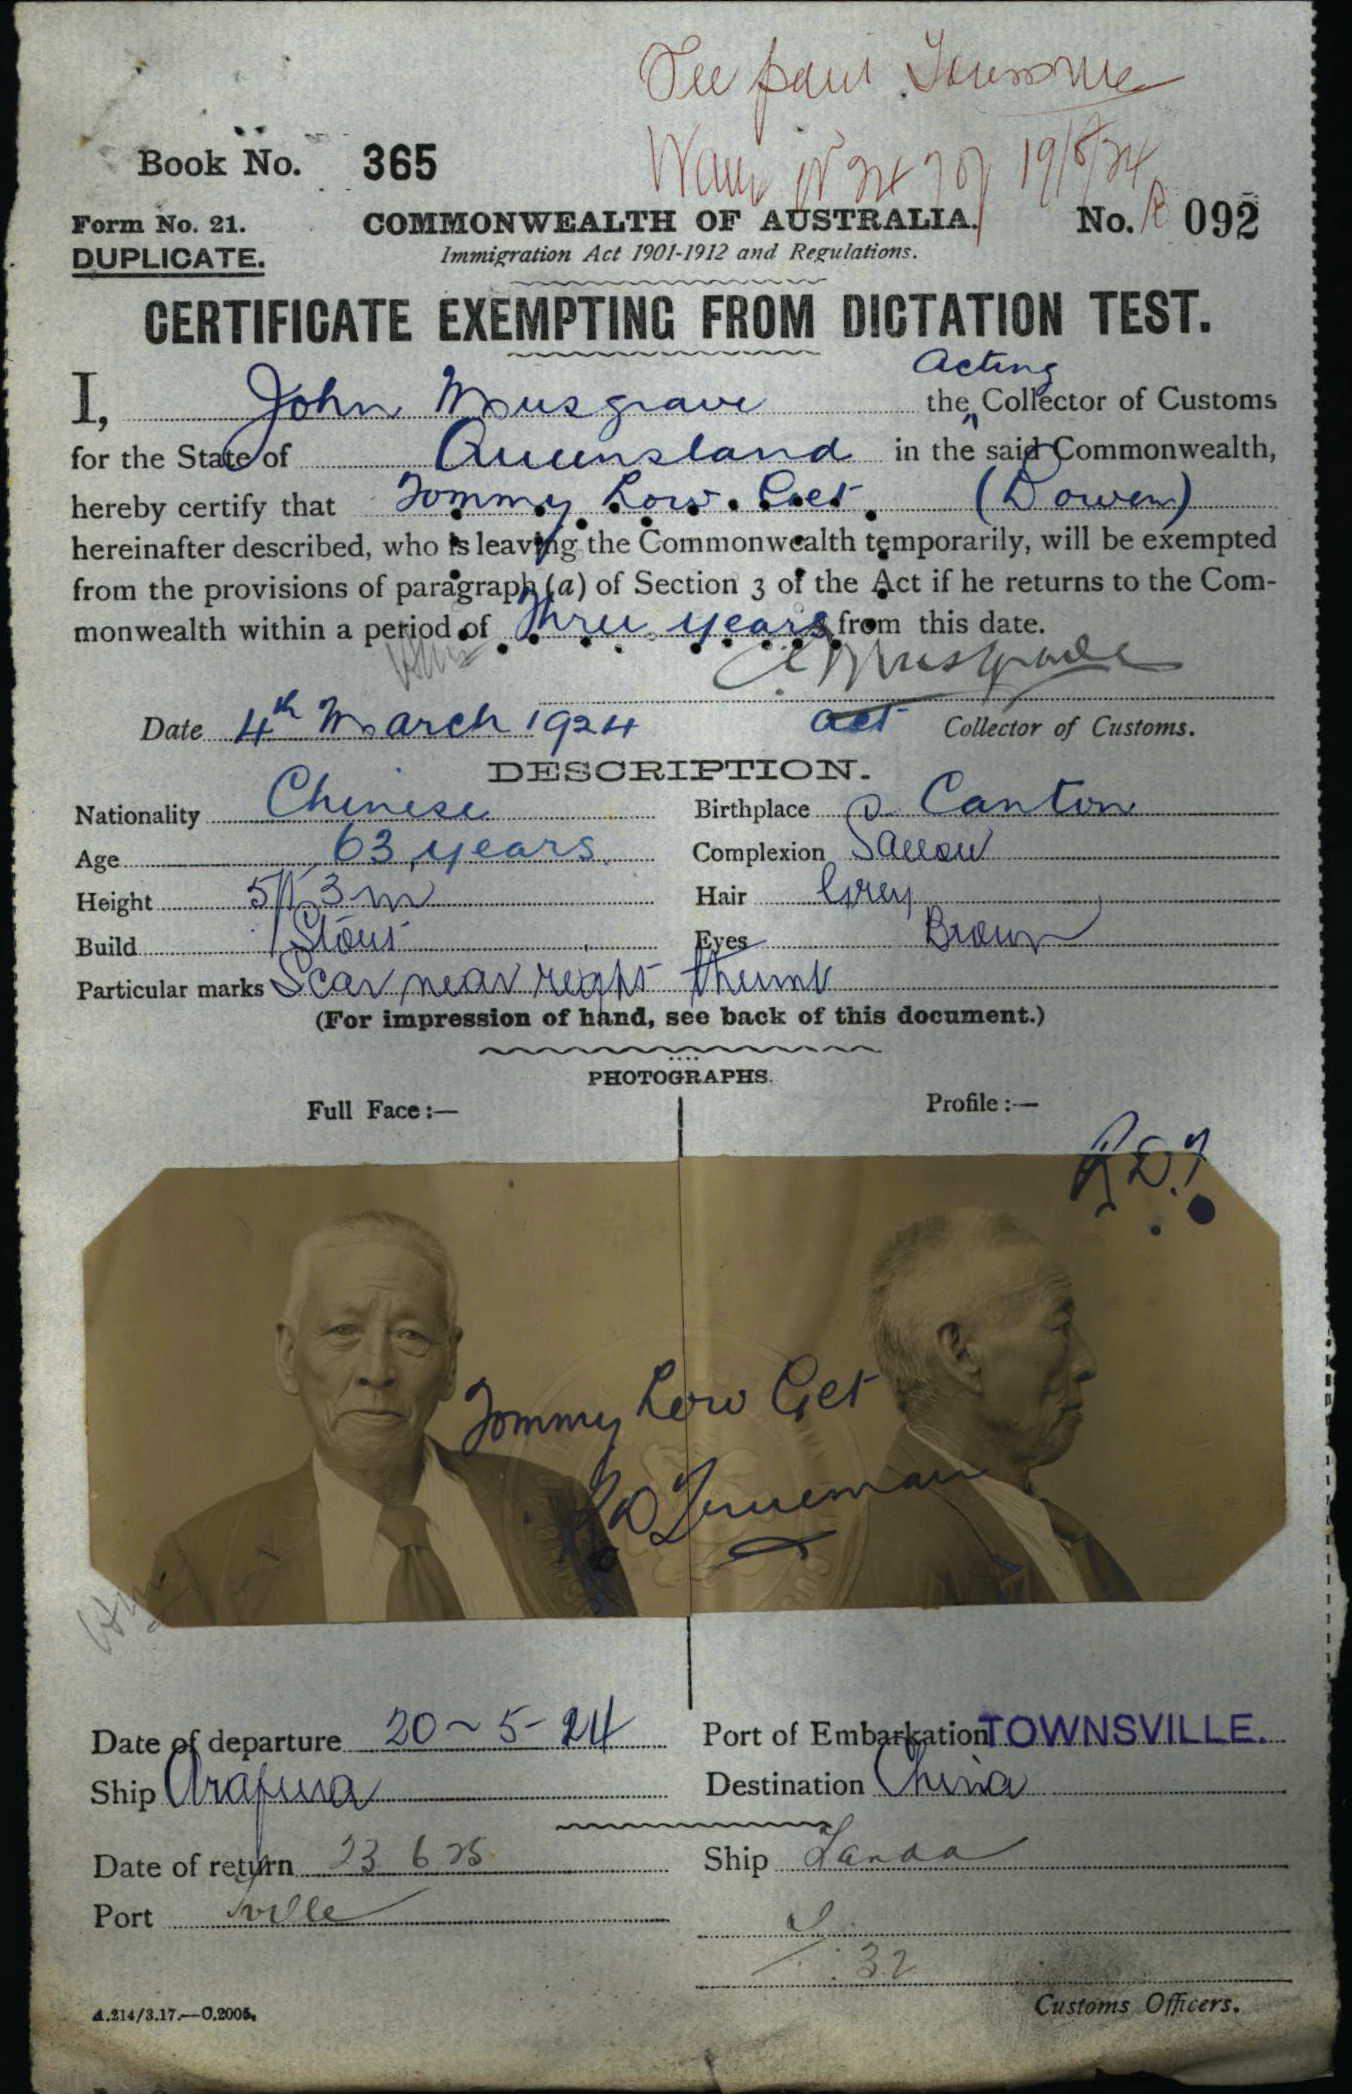 Fee paid Townsville
19/5/24
Book No. 365
Form No. 21. COMMONWEALTH OF AUSTRALIA. No. 092
DUPLICATE. Immigration Act 1901-1912 and Regulations.
CERTIFICATE EXEMPTING FROM DICTATION TEST.
Acting
I, John Musgrave the Collector of Customs
for the State of Queensland in the said Commonwealth,
hereby certify that Tommy Low Get (Bowen)
hereinafter described, who is leaving the Commonwealth temporarily, will be exempted
from the provisions of paragraph (a) of Section 3 of the Act if he returns to the Com-
monwealth within a period of Three years from this date.
Musgrave
Date 4th March 1924 Act Collector of Customs.
DESCRIPTION.
Nationality Chinese Birthplace Canton
Age 63 years Complexion Sallow
Height 5ft 3 in Hair Grey
Build Stout Eyes Brown
Particular marks Scar near right thumb
(For impression of hand, see back of this document.)
PHOTOGRAPHS.
Full Face:— Profile:—
R.D.T
Tommy Low Get
RD Trueman
Date of departure 20-5-24 Port of Embarkation TOWNSVILLE.
Ship Arafura Destination China
Date of return 23 6 25 Ship Tanda
Port Tville
32
Customs Officers.
A.214/3.17.—C.2005.